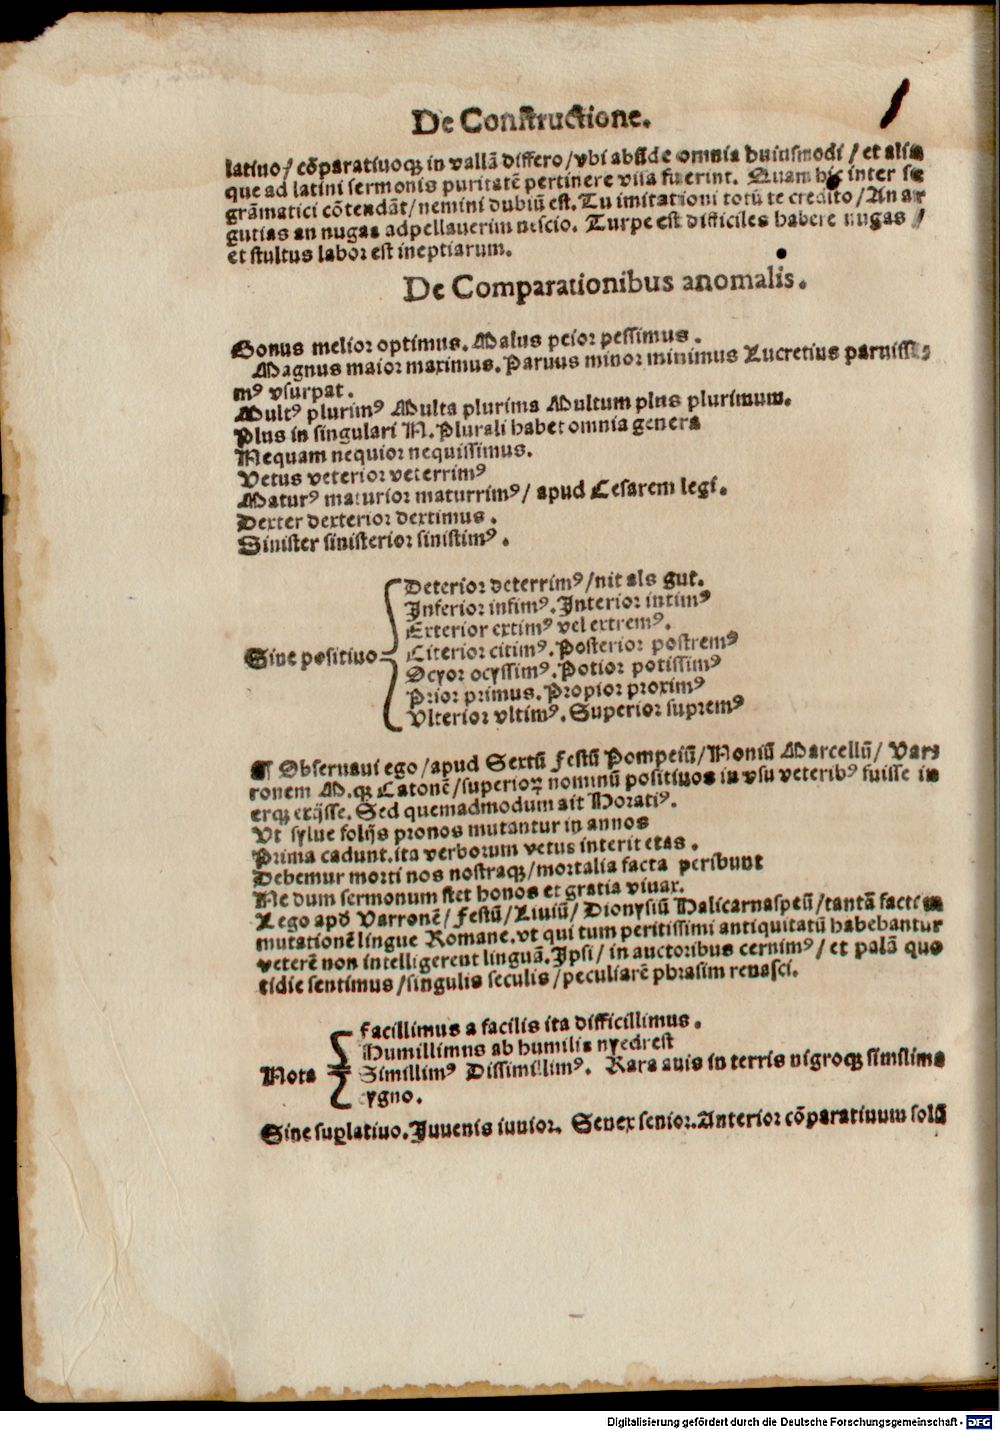 De Constructione.
latiuo/ cōparatiuoqꝫ in vallā differo/vbi abūde omnia huiusmodi / et alia
que ad latini sermonis puritatē pertinere visa fuerint. Quam hic inter se
grāmatici cōtendāt/nemini dubiū est. Tu imitationi totū te credito/An ar
gutias an nugas adpellauerim nescio. Turpe est difficiles habere nugas /
et stultus labor est ineptiarum.
De Comparationibus anomalis.
Bonus melior optimus. Malus peior pessimus .
Magnus maior maximus. Paruus minor minimus Lucretius paruissi-
mꝰ vsurpat .
Multꝰ plurimꝰ Multa plurima Multum plus plurimum.
Plus in singulari N. Plurali habet omnia genera
Nequam nequior nequissimus.
Vetus veterior veterrimꝰ
Maturꝰ maturior maturrimꝰ/ apud Cesarem legi.
Dexter dexterior dextimus .
Sinister sinisterior sinistimꝰ .
Deterior deterrimꝰ/nit als gut.
Inferior infimꝰ. Interior intimꝰ
Exterior extimꝰ vel extremꝰ.
Sine positiuo Citerior citimꝰ. Posterior postremꝰ
Ocyor ocyssimꝰ. Potior potissimꝰ
Prior primus. Propior proximꝰ
Vlterior vltimꝰ. Superior supremꝰ
¶ Obseruaui ego/apud Sextū Festū Pompeiū/Noniū Marcellū/ Var-
ronem M.qꝫ Catonē/superioꝝ nominū positiuos in vsu veteribꝰ fuisse in
terqꝫ exijsse. Sed quemadmodum ait Horatiꝰ.
Vt sylue folijs pronos mutantur in annos
Prima cadunt. ita verborum vetus interit etas .
Debemur morti nos nostraqꝫ/mortalia facta peribunt
Ne dum sermonum stet honos et gratia viuax.
Lego apd Varronē/ Festū/Liuiū/ Dionysiū Halicarnaseū/tantā factam
mutationē lingue Romane. vt qui tum peritissimi antiquitatū habebantur
veterē non intelligerent linguā. Ipsi/ in auctoribus cernimꝰ/ et palā quo
tidie sentimus/singulis seculis/peculiarē phrasim renasci.
Facillimus a facilis ita difficillimus .
Humillimus ab humilis est
Nota Simillimꝰ Dissimillimꝰ. Rara auis in terris nigroqꝫ simillima
cygno.
Sine suꝑlatiuo. Iuuenis iunior. Senex senior. Anterior cōparatiuum solū
Digitalisierung gefördert durch die Deutsche Forschungsgemeinschaft - DFG